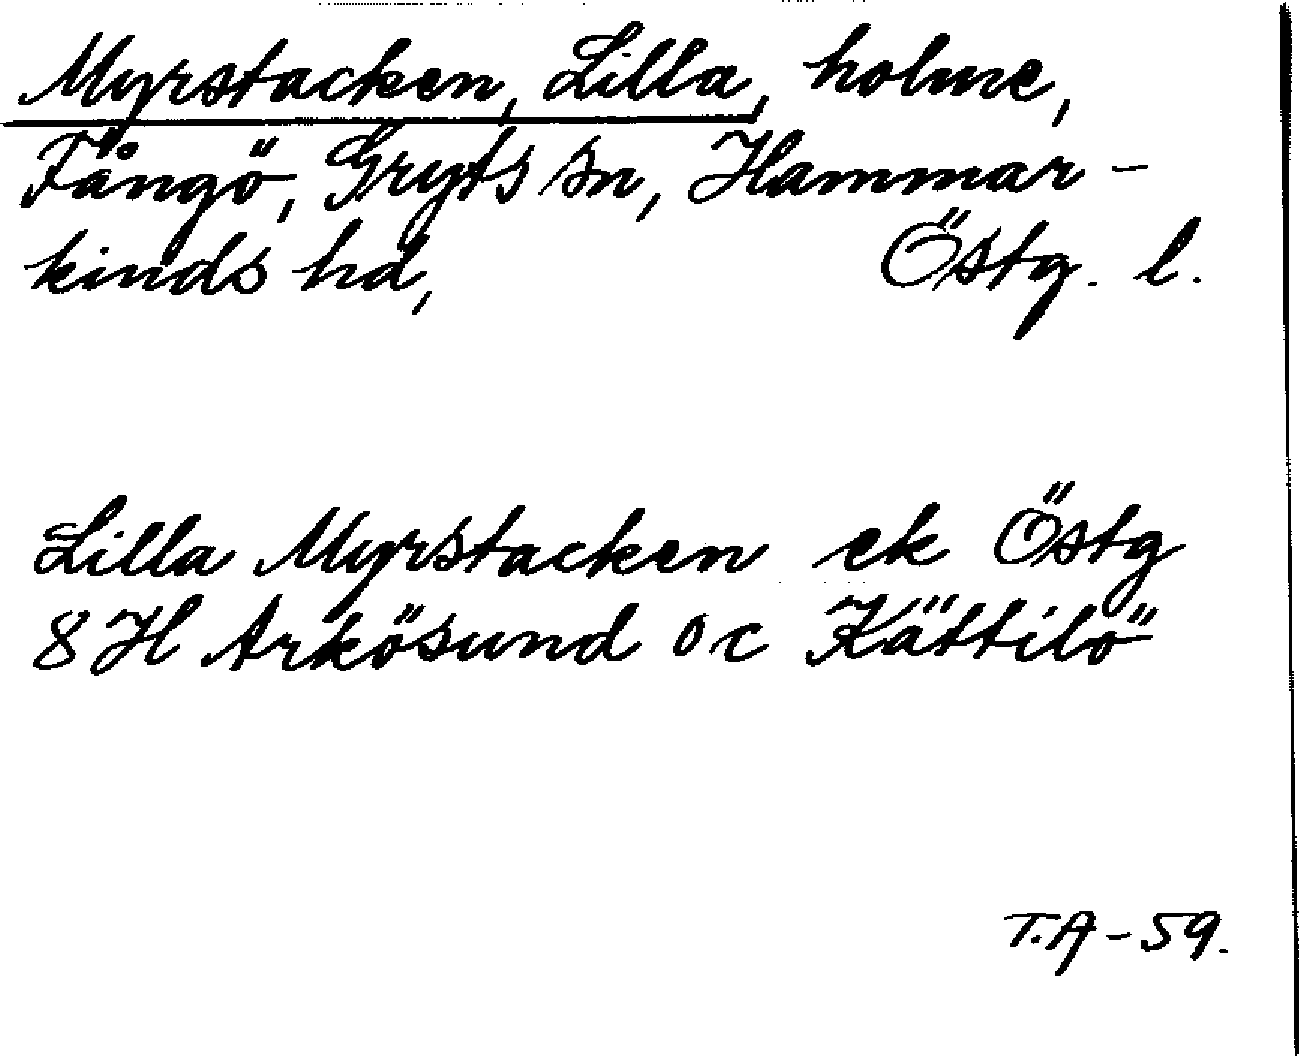 Myrstacken, Lilla, holme,
Fångö, Gryts sn, Hammar-
kinds hd, Östg. l.
Lilla Myrstacken ek Östg
8 H Arkösund oc Kättilö
T.A - 59.